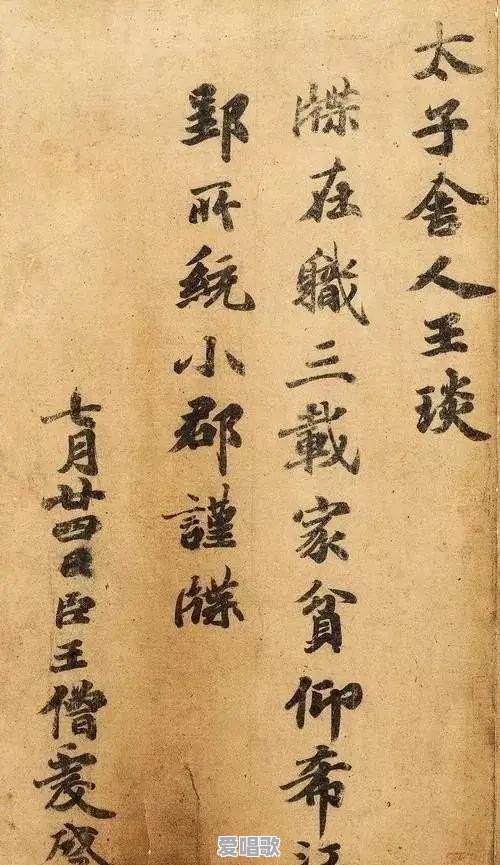 太子舍人王琰
牒在職三載家貧仰希江
郢所統小郡謹牒
七月廿四日臣王僧虔啓
爱唱歌